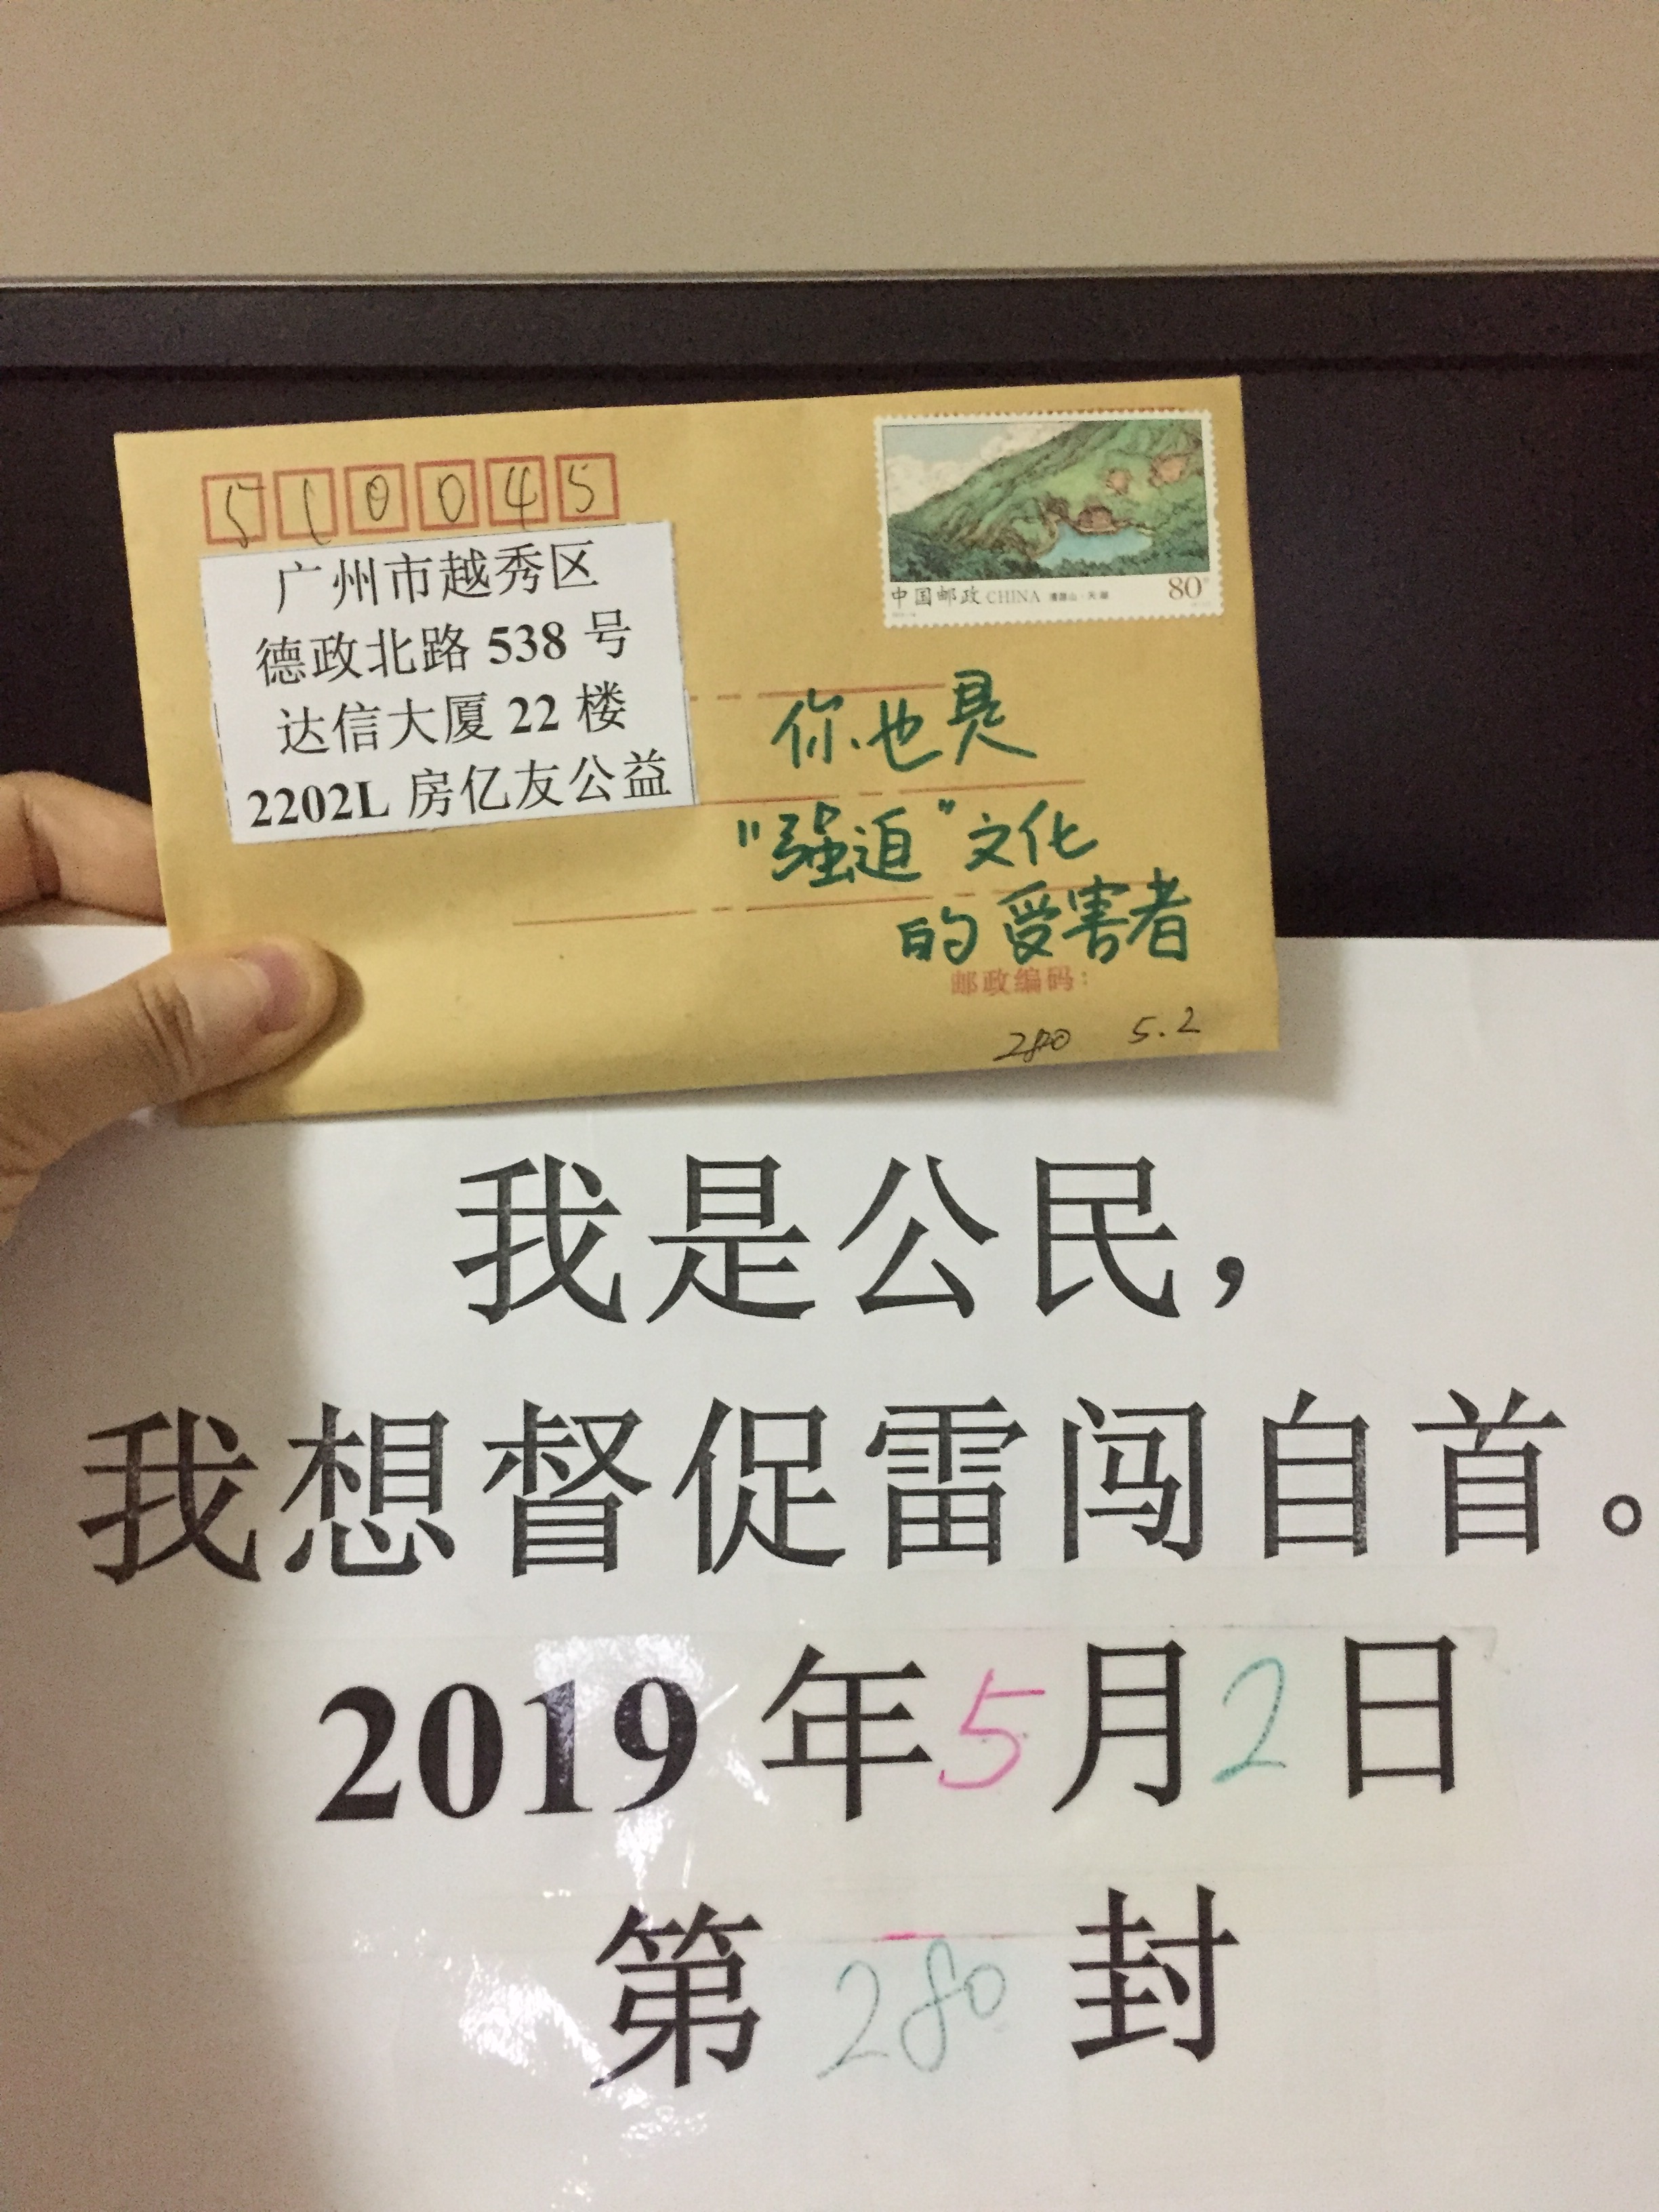 510045
广州市越秀区
德政北路 538 号
达信大厦 22 楼
2202L 房亿友公益
中国邮政 CHINA
80
你也是
"强迫"文化
的受害者
邮政编码：
280 5.2
我是公民，
我想督促雷闯自首。
2019 年 5 月 2 日
第 280 封